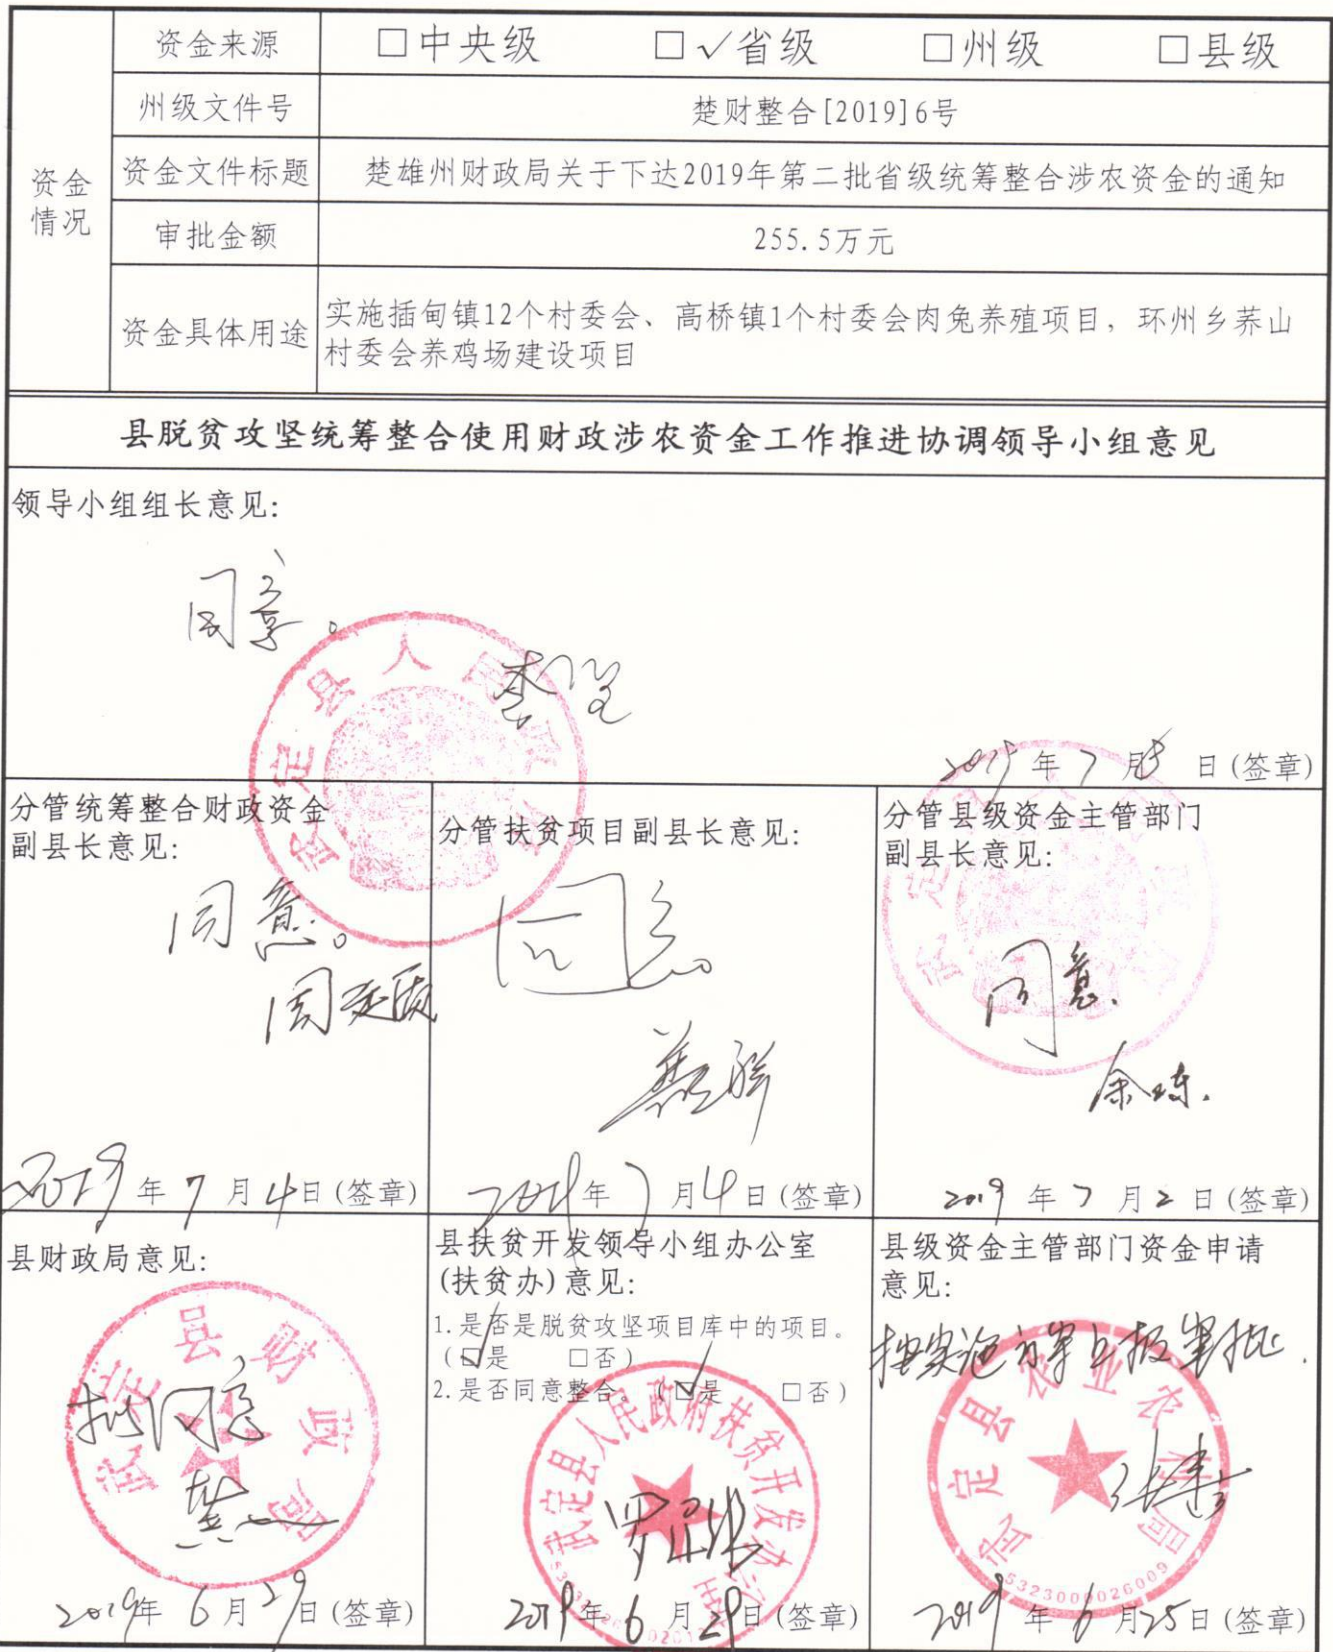 资金情况
资金来源 □中央级 □✓省级 □州级 □县级
州级文件号 楚财整合[2019]6号
资金文件标题 楚雄州财政局关于下达2019年第二批省级统筹整合涉农资金的通知
审批金额 255.5万元
资金具体用途 实施插甸镇12个村委会、高桥镇1个村委会肉兔养殖项目，环州乡荞山
村委会养鸡场建设项目
县脱贫攻坚统筹整合使用财政涉农资金工作推进协调领导小组意见
领导小组组长意见：
同意。
武定县人民政府
年7月 日(签章)
分管统筹整合财政资金
副县长意见：
同意。
2019年7月4日(签章)
分管扶贫项目副县长意见：
同意
2019年7月4日(签章)
分管县级资金主管部门
副县长意见：
武定县人民政府
同意.
2019年7月2日(签章)
县财政局意见：
武定县财政局
拟同意
2019年6月29日(签章)
县扶贫开发领导小组办公室
(扶贫办)意见：
1.是否是脱贫攻坚项目库中的项目。
(☑是 □否)
2.是否同意整合。(☑是 □否)
武定县人民政府扶贫开发办公室
2019年6月29日(签章)
县级资金主管部门资金申请
意见：
按实施方案上报审批.
武定县农业农村局
5323000026009
2019年6月25日(签章)